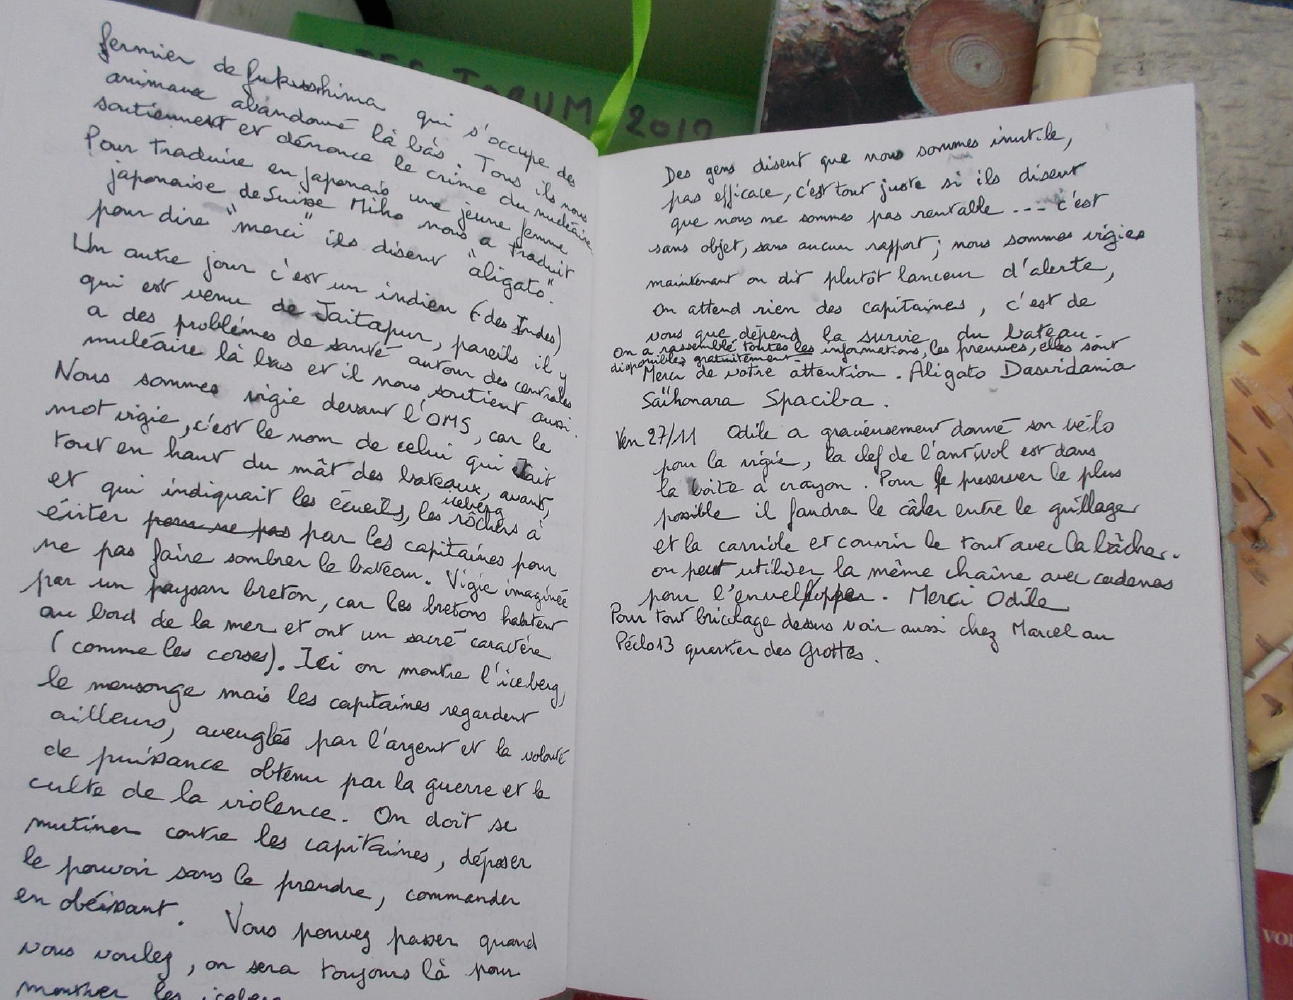 fermier de fukushima qui s'occupe des
animaux abandonné là bàs. Tous ils nous
soutiennent et dénonce le crime du nucléaire
Pour traduire en japonais une jeune femme
japonaise de Suisse Miho nous a traduit
pour dire "merci" ils disent "aligato".
Un autre jour c'est un indien (des Indes)
qui est venu de Jaitapur, pareils il y
a des problémes de santé autour des centrales
nucléaire là bas et il nous soutient aussi.
Nous sommes vigie devant l'OMS, car le
mot vigie, c'est le nom de celui qui était
tout en haut du mât des bateaux, avant,
et qui indiquait les écueils, les iceberg rôchers à
éviter pour ne pas par les capitaines pour
ne pas faire sombrer le bateau. Vigie imaginée
par un paysan breton, car les bretons habitent
au bord de la mer et ont un sacré caractére
(comme les corses). Ici on montre l'iceberg,
le mensonge mais les capitaines regardent
ailleurs, aveuglés par l'argent et la volonté
de puissance obtenu par la guerre et le
culte de la violence. On doit se
mutiner contre les capitaines, déposer
le pouvoir sans le prendre, commander
en obéissant. Vous pouvez passer quand
vous voulez, on sera toujours là pour
montrer les iceberg
TER FORUM 2012
Des gens disent que nous sommes inutile,
pas efficace, c'est tout juste si ils disent
que nous ne sommes pas rentable --- c'est
sans objet, sans aucun rapport; nous sommes vigies
maintenant on dit plutôt lanceur d'alerte,
on attend rien des capitaines, c'est de
vous que dépend la survie du bateau.
On a rassemblé toutes les informations, les preuves, elles sont
disponibles gratuitement
Merci de votre attention. Aligato Dasvidania
Saïhonara Spaciba.
Ven 27/11 Odile a gracieusement donné son vélo
pour la vigie, la clef de l'antivol est dans
la boite à crayon. Pour le preserver le plus
possible il faudra le câler entre le grillage
et la carriole et couvrir le tout avec la bâche.
on peut utiliser la même chaîne avec cadenas
pour l'envelopper. Merci Odile
Pour tout bricolage dessus voir aussi chez Marcel au
Péclo13 quartier des Grottes.
VOI